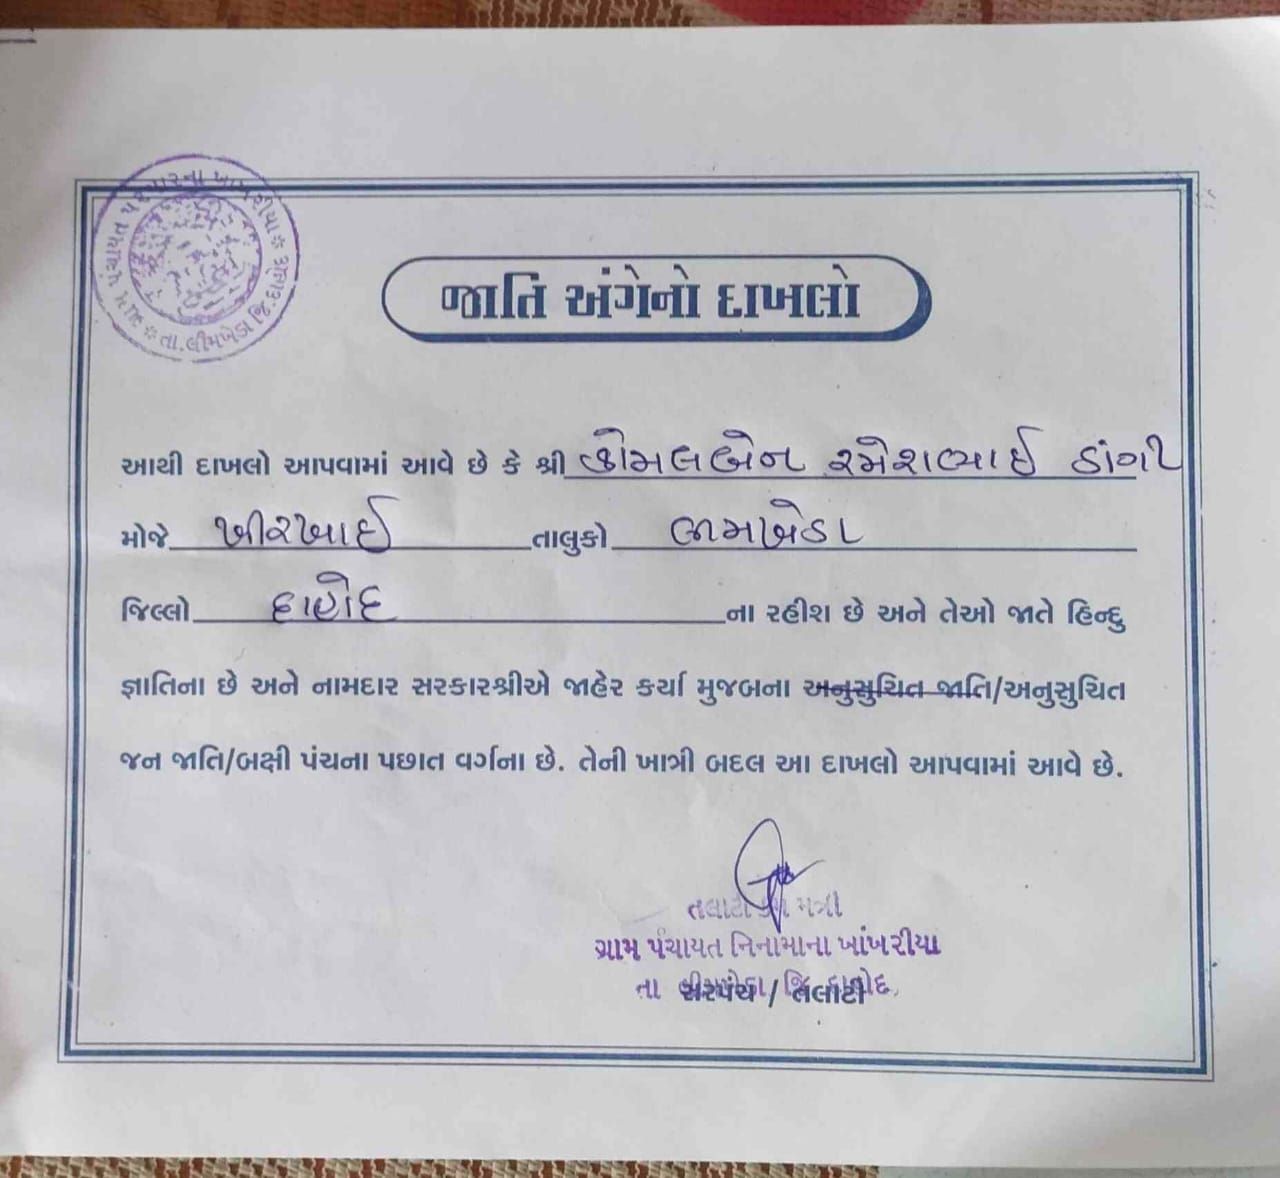 જાતિ અંગેનો દાખલો
આથી દાખલો આપવામાં આવે છે કે શ્રી કોમલબેન રમેશભાઈ ડાંગી
મોજે ખીરખાઈ તાલુકો લીમખેડા
જિલ્લો દાહોદ ના રહીશ છે અને તેઓ જાતે હિન્દુ
જ્ઞાતિના છે અને નામદાર સરકારશ્રીએ જાહેર કર્યા મુજબના અનુસુચિત જાતિ/અનુસુચિત
જન જાતિ/બક્ષી પંચના પછાત વર્ગના છે. તેની ખાત્રી બદલ આ દાખલો આપવામાં આવે છે.
તલાટી કમ મંત્રી
ગ્રામ પંચાયત નિનામાના ખાંખરીયા
તા લીમખેડા જિ દાહોદ
સરપંચ / તલાટી
તા.લીમખેડા જિ.દાહોદ